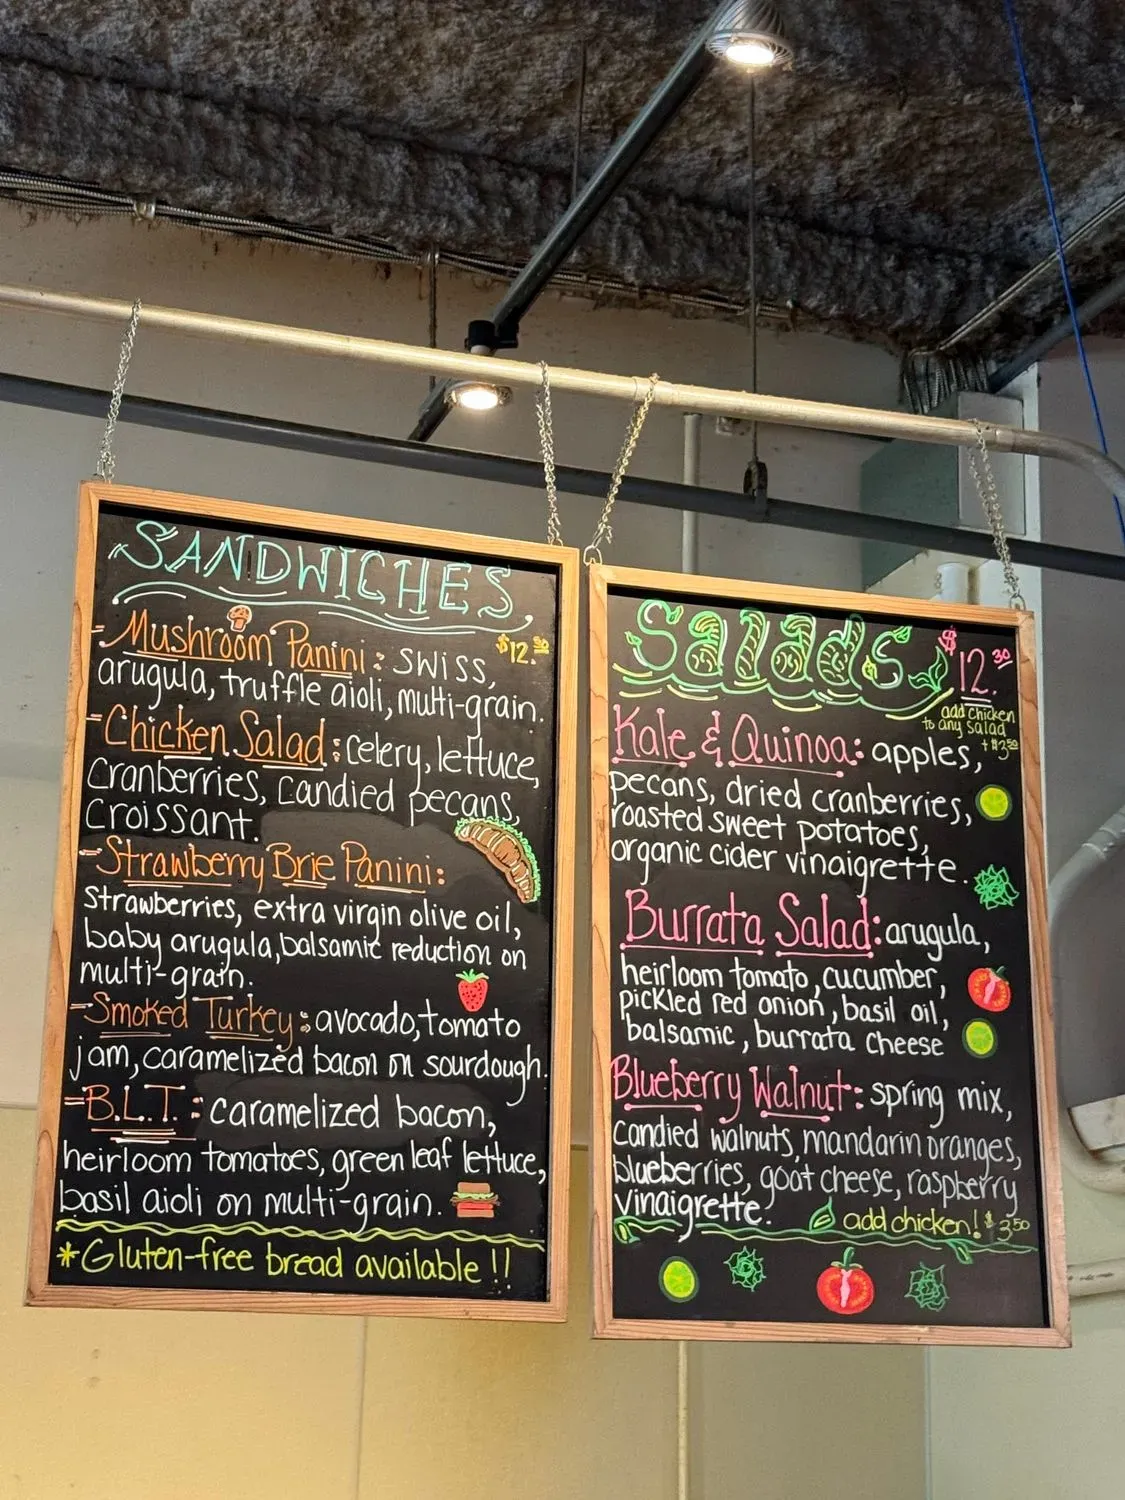 SANDWICHES
- Mushroom Panini: swiss, $12.30
arugula, truffle aioli, multi-grain.
- Chicken Salad: celery, lettuce,
cranberries, candied pecans,
croissant.
- Strawberry Brie Panini:
strawberries, extra virgin olive oil,
baby arugula, balsamic reduction on
multi-grain.
- Smoked Turkey: avocado, tomato
jam, caramelized bacon on sourdough.
- B.L.T.: caramelized bacon,
heirloom tomatoes, green leaf lettuce,
basil aioli on multi-grain.
*Gluten-free bread available!!
Salads $12.30
add chicken
to any salad
+$3.50
Kale & Quinoa: apples,
pecans, dried cranberries,
roasted sweet potatoes,
organic cider vinaigrette.
Burrata Salad: arugula,
heirloom tomato, cucumber,
pickled red onion, basil oil,
balsamic, burrata cheese
Blueberry Walnut: spring mix,
candied walnuts, mandarin oranges,
blueberries, goat cheese, raspberry
vinaigrette.
add chicken! $3.50